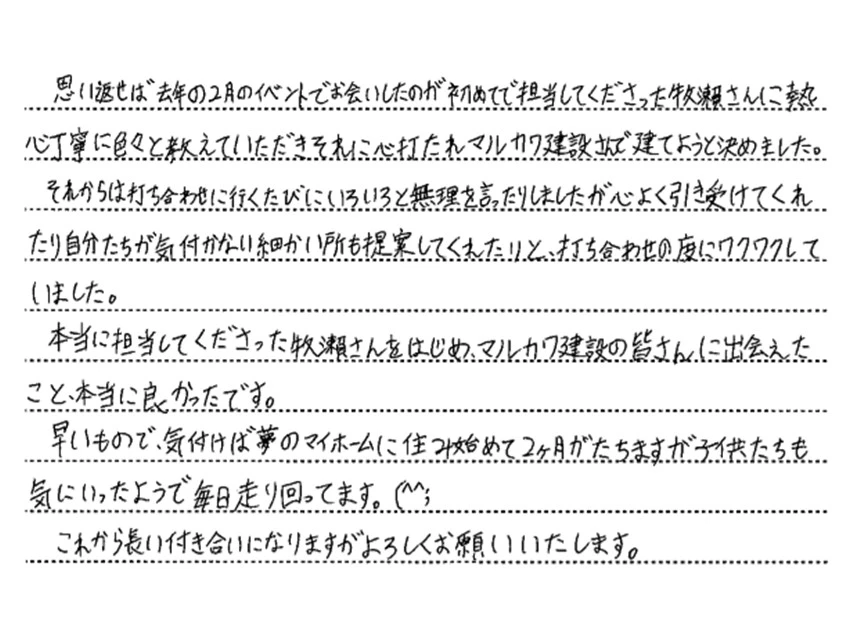 思い返せば去年の2月のイベントでお会いしたのが初めてで担当してくださった牧瀬さんに熱
心丁寧に色々と教えていただきそれに心打たれマルカワ建設さんで建てようと決めました。
それからは打ち合わせに行くたびにいろいろと無理を言ったりしましたが心よく引き受けてくれ
たり自分たちが気付かない細かい所も提案してくれたりと、打ち合わせの度にワクワクして
いました。
本当に担当してくださった牧瀬さんをはじめ、マルカワ建設の皆さんに出会えた
こと、本当に良かったです。
早いもので、気付けば夢のマイホームに住み始めて2ヶ月がたちますが子供たちも
気にいったようで毎日走り回ってます。(^^;
これから長い付き合いになりますがよろしくお願いいたします。